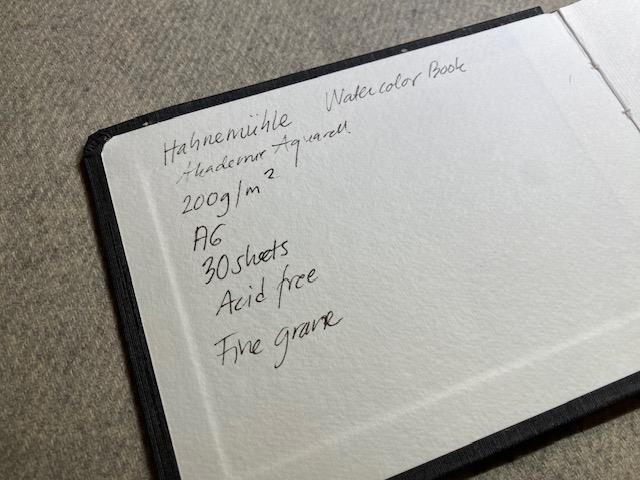 Hahnemühle Watercolor Book
Akademie Aquarell
200g/m²
A6
30 sheets
Acid free
Fine graine